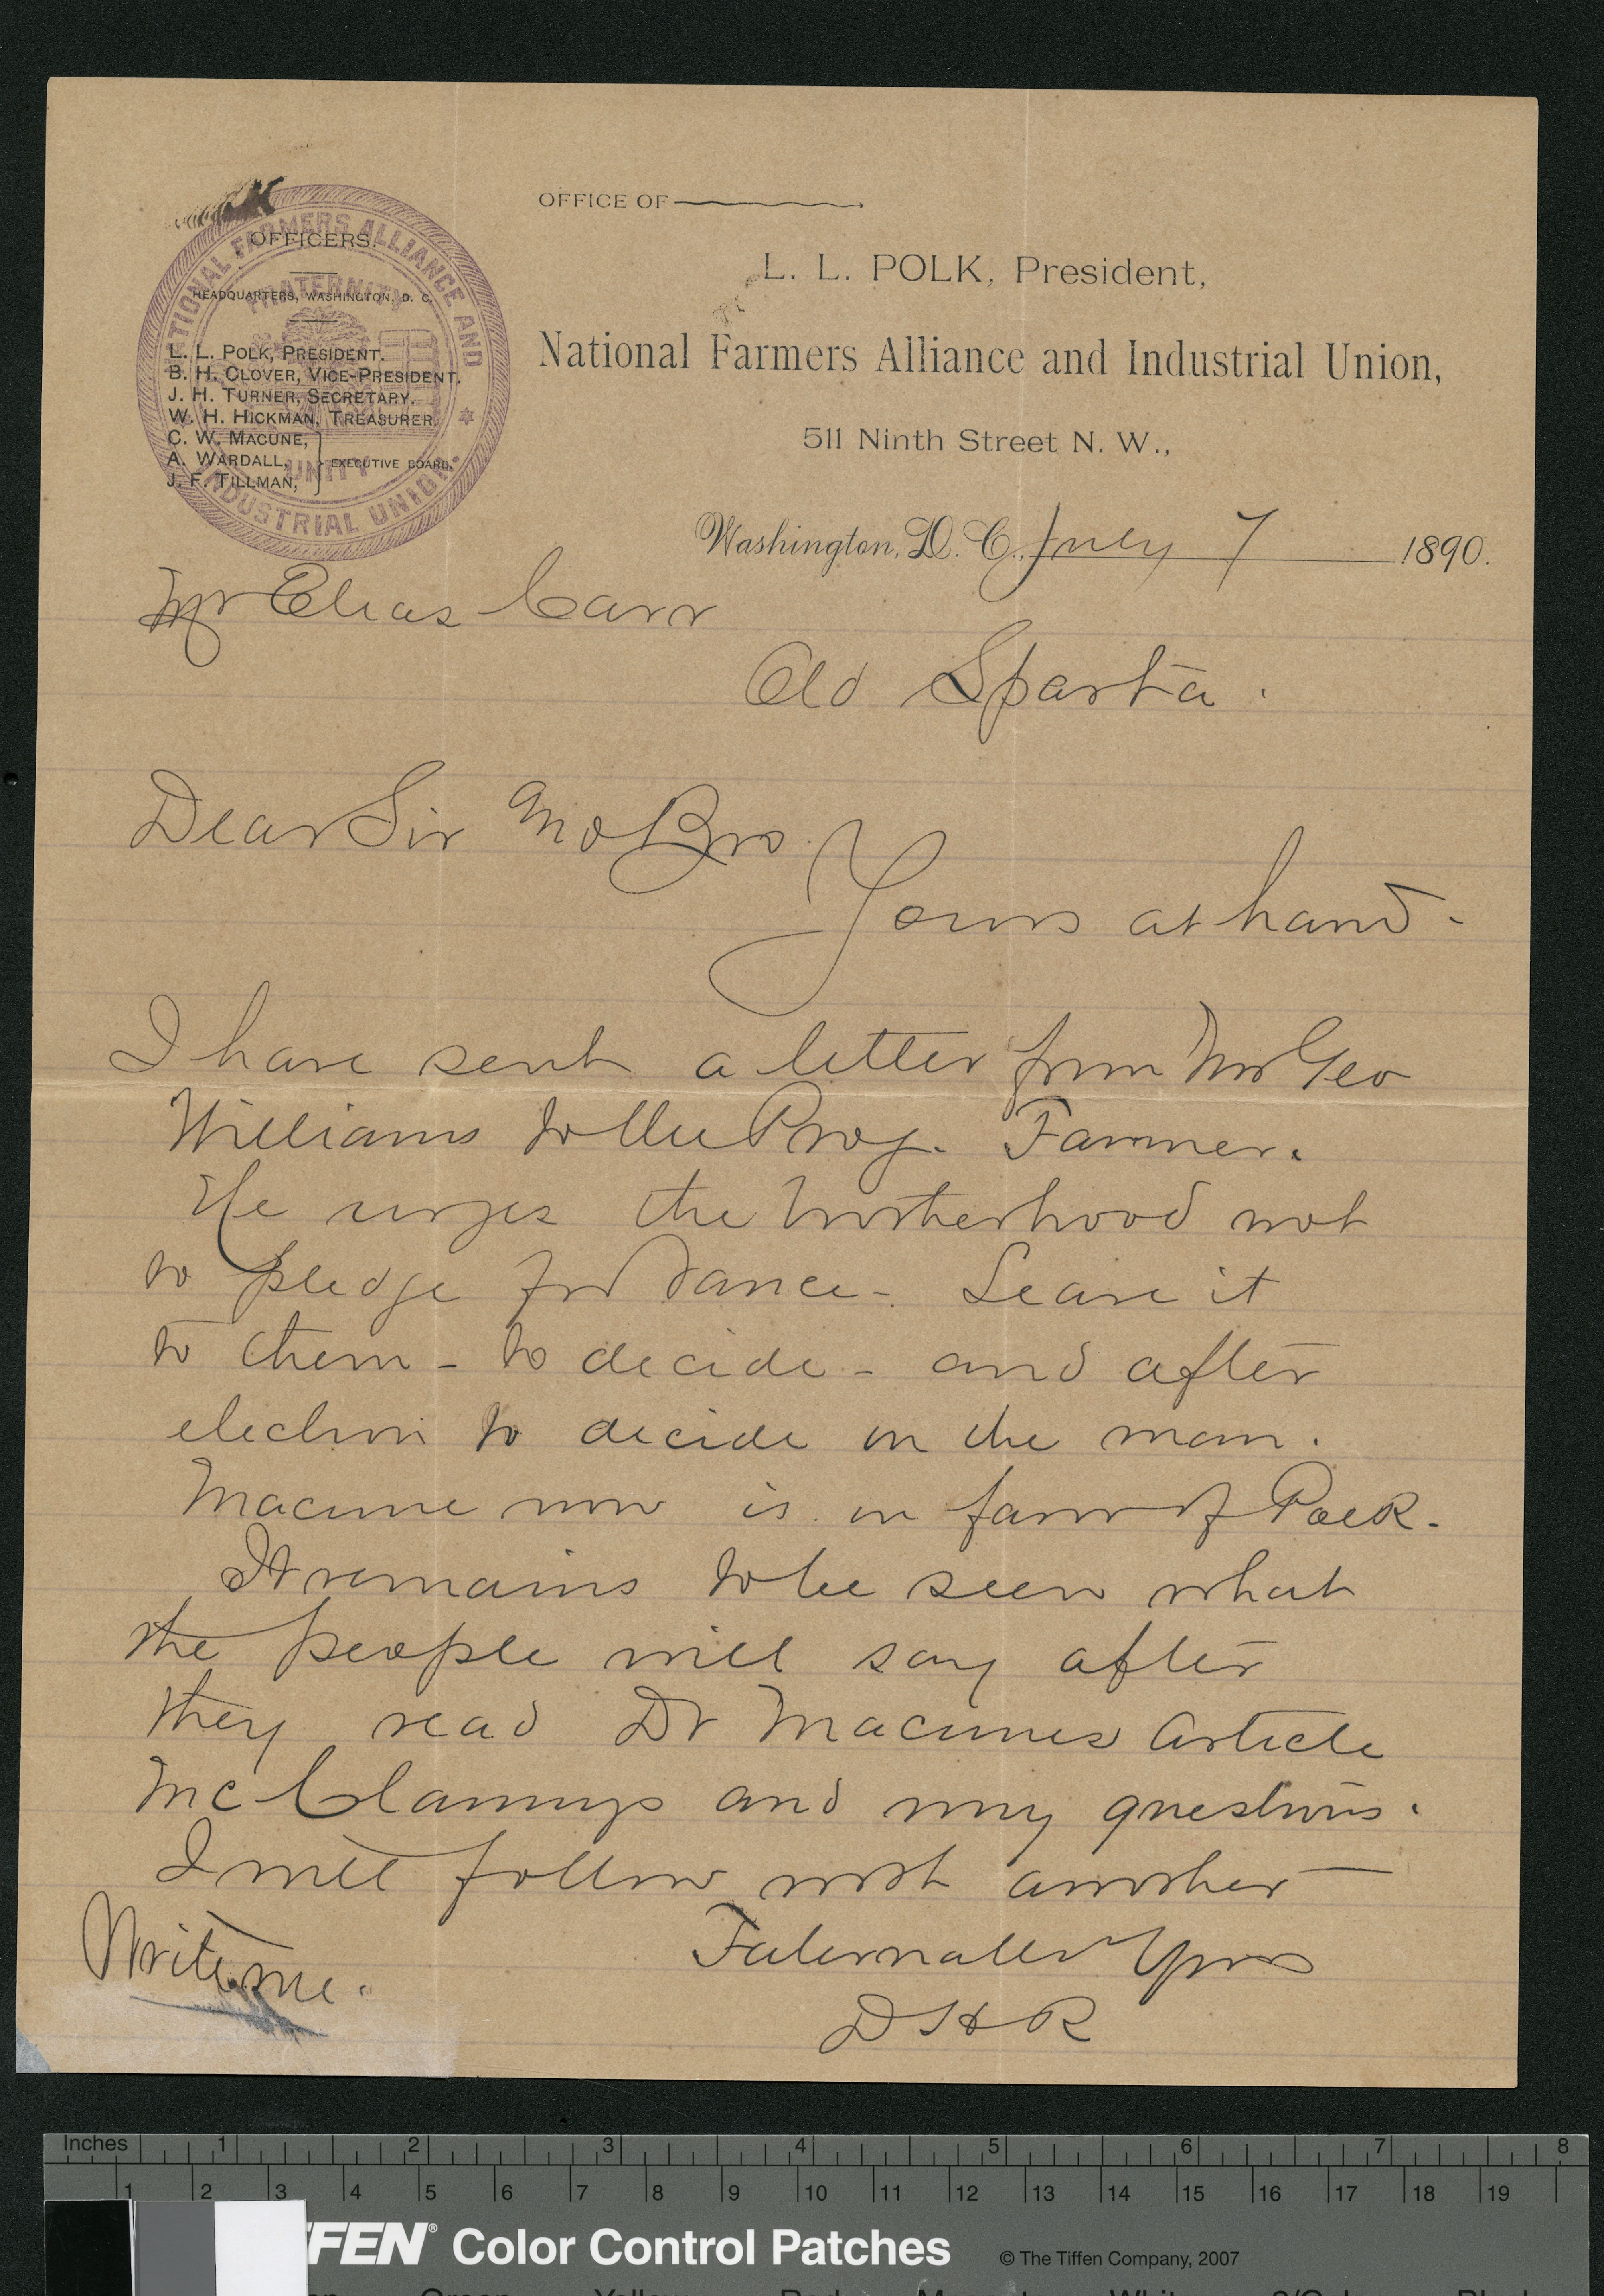 OFFICE OF
L. L. POLK, President,
National Farmers Alliance and Industrial Union,
511 Ninth Street N. W.,
Washington, D. C., July 7 1890.
NATIONAL FARMERS ALLIANCE AND INDUSTRIAL UNION.
FRATERNITY
UNITY
OFFICERS.
HEADQUARTERS, WASHINGTON, D. C.
L. L. POLK, PRESIDENT.
B. H. CLOVER, VICE-PRESIDENT.
J. H. TURNER, SECRETARY.
W. H. HICKMAN, TREASURER.
C. W. MACUNE,
A. WARDALL, EXECUTIVE BOARD.
J. F. TILLMAN,
Mr Elias Carr
Old Sparta.
Dear Sir and Bro.
Yours at hand-
I have sent a letter from Mr Geo
Williams to the Prog. Farmer.
He urges the brotherhood not
to pledge for Vance - Leave it
to them - to decide - and after
election to decide on the man.
Macune now is in favor of Polk.
It remains to be seen what
the people will say after
they read Dr Macunes article
McClammys and my questions.
I will follow with another -
Fraternally Yours
D H R
Write me.
Inches 1 2 3 4 5 6 7 8
1 2 3 4 5 6 7 8 9 10 11 12 13 14 15 16 17 18 19
FFEN® Color Control Patches © The Tiffen Company, 2007